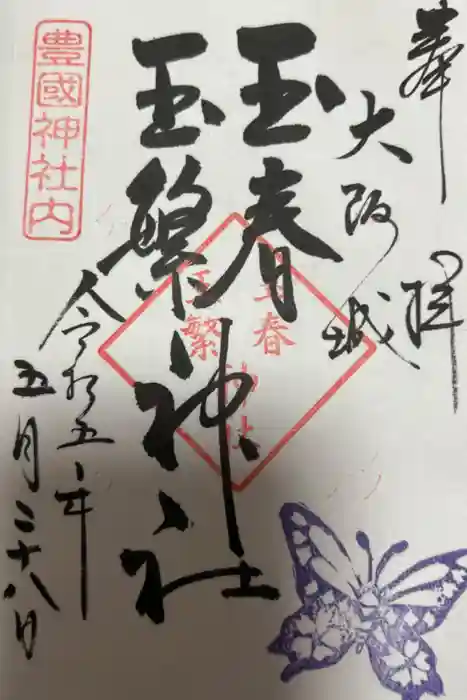 奉拝
大阪城
玉春
玉繁
神社
玉春
玉繁
神社
令和五年
五月二十八日
豊國神社内